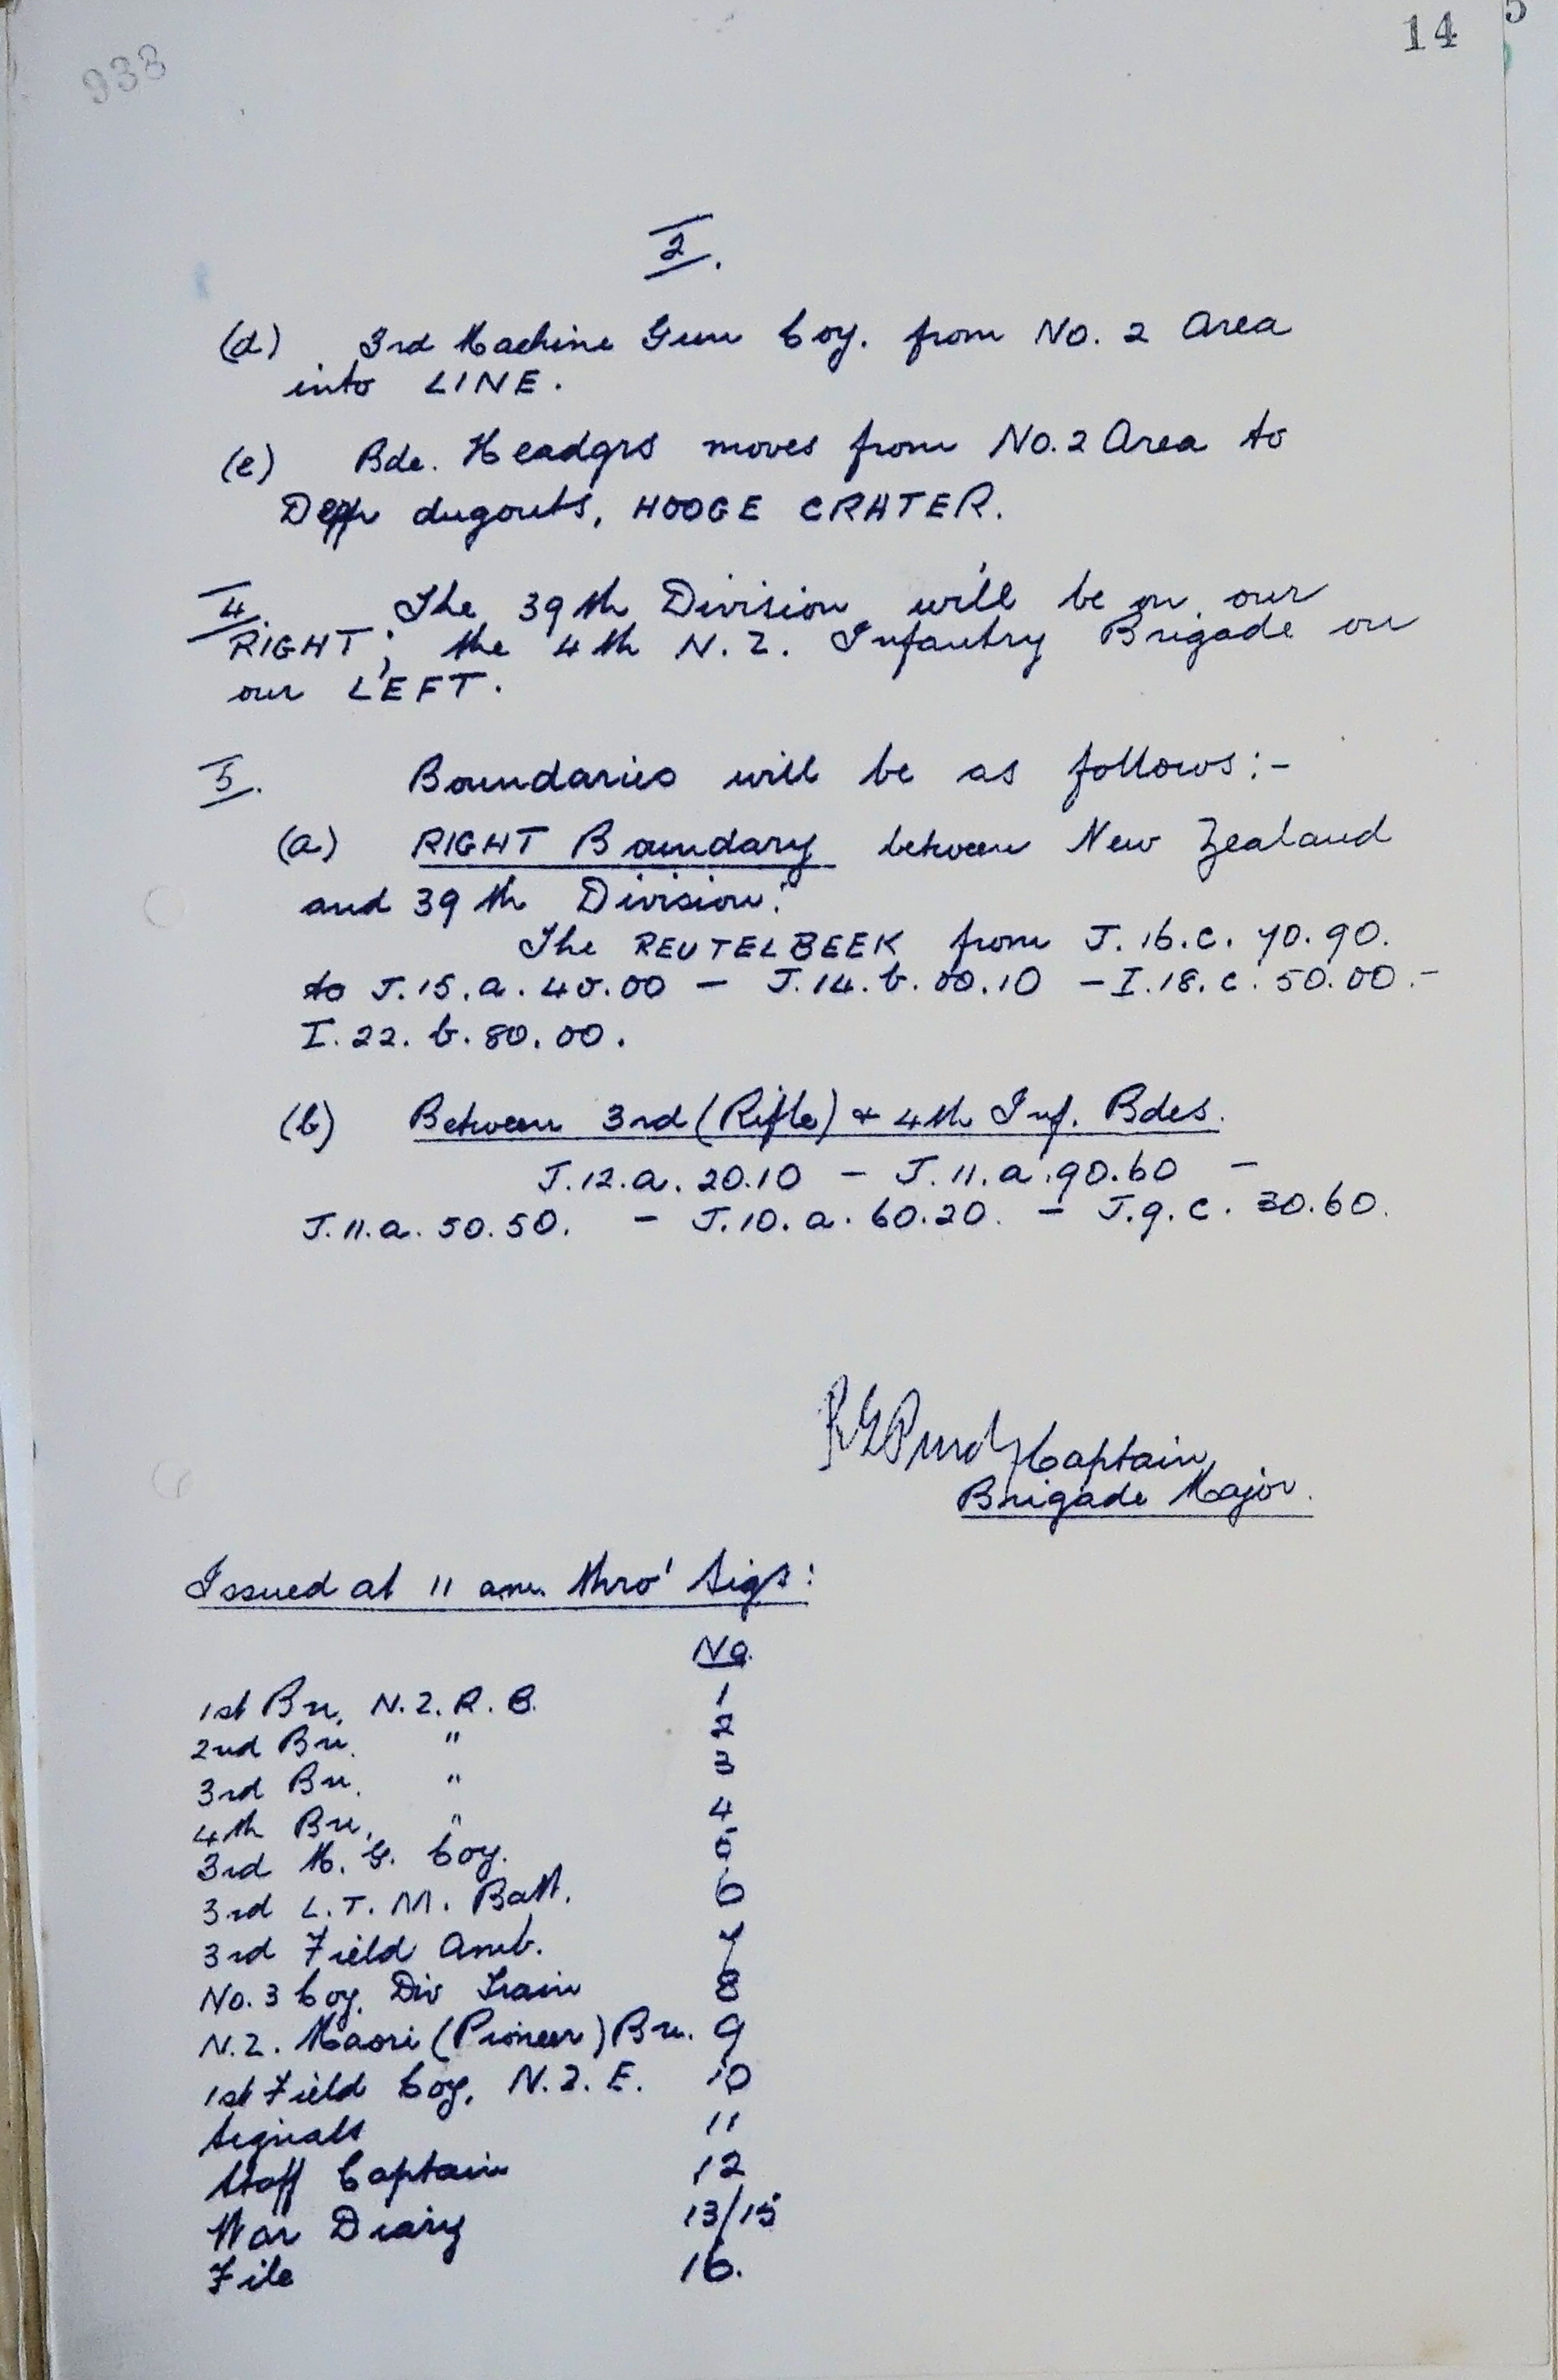 938
14
5
2.
(d) 3rd Machine Gun Coy. from No. 2 Area
into LINE.
(e) Bde. Headqrs moves from No. 2 Area to
Deep dugouts, HOOGE CRATER.
4. The 39th Division will be on our
RIGHT; the 4th N.Z. Infantry Brigade on
our LEFT.
5. Boundaries will be as follows:-
(a) RIGHT Boundary between New Zealand
and 39th Division:
The REUTELBEEK from J.16.c.70.90.
to J.15.a.40.00 - J.14.b.00.10 - I.18.c.50.00. -
I.22.b.80.00.
(b) Between 3rd (Rifle) & 4th Inf. Bdes.
J.12.a.20.10 - J.11.a.90.60 -
J.11.a.50.50. - J.10.a.60.20. - J.9.c.30.60.
Captain,
Brigade Major.
Issued at 11 am. thro' Sigs:
No.
1st Bn, N.Z.R.B. 1
2nd Bn. " 2
3rd Bn. " 3
4th Bn, " 4
3rd M.G. Coy. 5
3rd L.T.M. Batt. 6
3rd Field Amb. 7
No. 3 Coy. Div Train 8
N.Z. Maori (Pioneer) Bn. 9
1st Field Coy, N.Z.E. 10
Signals 11
Staff Captain 12
War Diary 13/15
File 16.